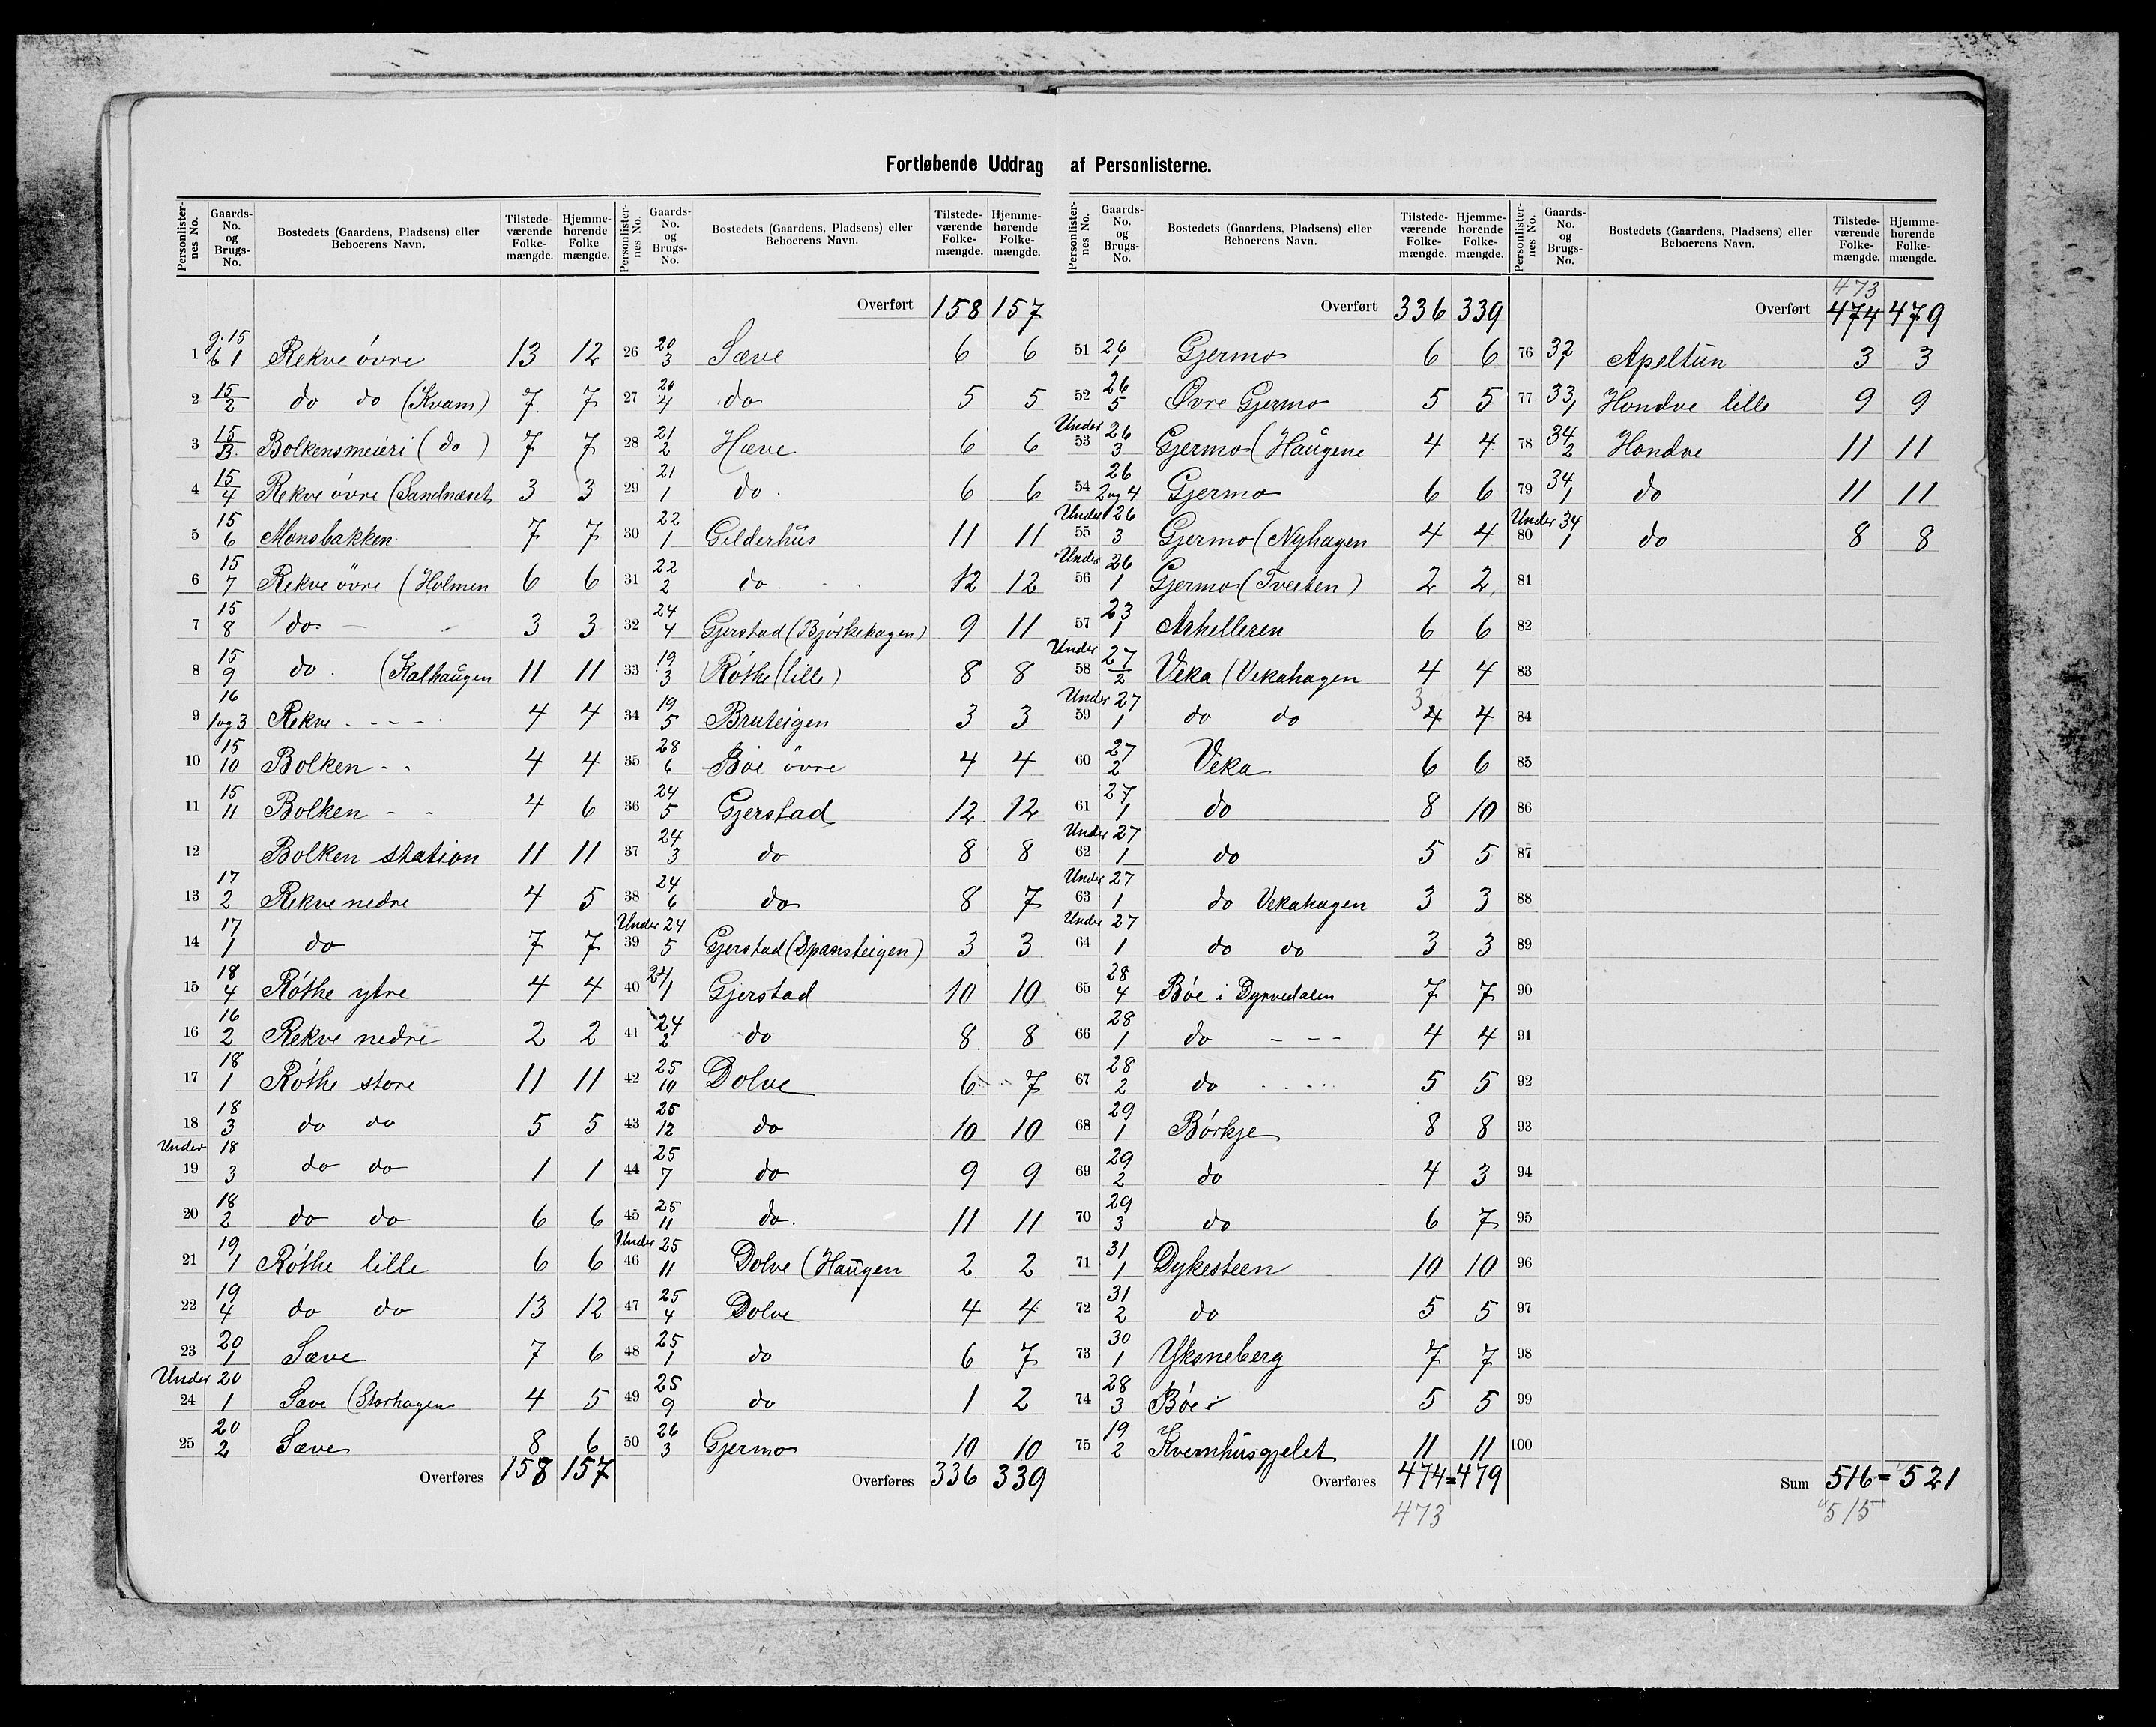 Fortløbende Uddrag af Personlisterne.
Personlister-nes No. | Gaards-No. og Brugs-No. | Bostedets (Gaardens, Pladsens) eller Beboerens Navn. | Tilstede-værende Folke-mængde. | Hjemme-hørende Folke mængde.
1 g. 15 b 1 Rekve övre 13 12
2 15/2 do do (Kvam) 7 7
3 15/3 Bolkensmeieri (do) 7 7
4 15/4 Rekve övre (Sandnæset 3 3
5 15/6 Monsbakken 7 7
6 15/7 Rekve övre (Holmen 6 6
7 15/8 do - 3 3
8 15/9 do. (Kalhaugen 11 11
9 16/1 og 3 Rekve - - - - 4 4
10 15/10 Bolken - - 4 4
11 15/11 Bolken - - 4 6
12 Bolken station 11 11
13 17/2 Rekve nedre 4 5
14 17/1 do 7 7
15 18/4 Röthe ytre 4 4
16 16/2 Rekve nedre 2 2
17 18/1 Röthe store 11 11
18 18/3 do do 5 5
19 Under 18/3 do do 1 1
20 18/2 do do 6 6
21 19/1 Röthe lille 6 6
22 19/4 do do 13 12
23 20/1 Sæve 7 6
24 Under 20/1 Sæve (Storhagen 4 5
25 20/2 Sæve 8 6
Overføres 158 157
Personlister-nes No. | Gaards-No. og Brugs-No. | Bostedets (Gaardens, Pladsens) eller Beboerens Navn. | Tilstede-værende Folke-mængde. | Hjemme-hørende Folke-mængde.
Overført 158 157
26 20/3 Sæve 6 6
27 20/4 do 5 5
28 21/2 Hæve 6 6
29 21/1 do. 6 6
30 22/1 Gilderhus 11 11
31 22/2 do. 12 12
32 24/4 Gjerstad (Bjørkehagen) 9 11
33 19/3 Röthe (lille) 8 8
34 19/5 Bruteigen 3 3
35 28/6 Böe övre 4 4
36 24/5 Gjerstad 12 12
37 24/3 do 8 8
38 24/6 do 8 7
39 Under 24/5 Gjerstad (Spansteigen) 3 3
40 24/1 Gjerstad 10 10
41 24/2 do 8 8
42 25/10 Dolve 6 7
43 25/12 do 10 10
44 25/7 do 9 9
45 25/11 do. 11 11
46 Under 25/11 Dolve (Haugen 2 2
47 25/4 Dolve 4 4
48 25/1 do 6 7
49 25/9 do 1 2
50 26/3 Gjermo 10 10
Overføres 336 339
Personlister-nes No. | Gaards-No. og Brugs-No. | Bostedets (Gaardens, Pladsens) eller Beboerens Navn. | Tilstede-værende Folke-mængde. | Hjemme-hørende Folke-mængde.
Overført 336 339
51 26/1 Gjermo 6 6
52 26/5 Övre Gjermo 5 5
53 Under 26/3 Gjermo (Haugene 4 4
54 26/2 og 4 Gjermo 6 6
55 Under 26/3 Gjermo (Nyhagen 4 4
56 Under 26/1 Gjermo (Tveiten) 2 2
57 23/1 Arhelleren 6 6
58 Under 27/2 Veka (Vekahagen 4 4
59 Under 27/1 do do 3 4 4
60 27/2 Veka 6 6
61 27/1 do 8 10
62 Under 27/1 do 5 5
63 Under 27/1 do Vekahagen 3 3
64 Under 27/1 do do 3 3
65 28/4 Böe i Dyrvedalen 7 7
66 28/1 do - - - 4 4
67 28/2 do 5 5
68 29/1 Börkje 8 8
69 29/2 do 4 3
70 29/3 do 6 7
71 31/1 Dykesteen 10 10
72 31/2 do 5 5
73 30/1 Yksneberg 7 7
74 28/3 Böe 5 5
75 19/2 Kvernhusgjelet 11 11
Overføres 474 = 479
473
Personlister-nes No. | Gaards-No. og Brugs-No. | Bostedets (Gaardens, Pladsens) eller Beboerens Navn. | Tilstede-værende Folke-mængde. | Hjemme-hørende Folke-mængde.
473
Overført 474 479
76 32/1 Apeltun 3 3
77 33/1 Hondve lille 9 9
78 34/2 Hondve 11 11
79 34/1 do 11 11
80 Under 34/1 do 8 8
81
82
83
84
85
86
87
88
89
90
91
92
93
94
95
96
97
98
99
100
Sum 516 = 521
515